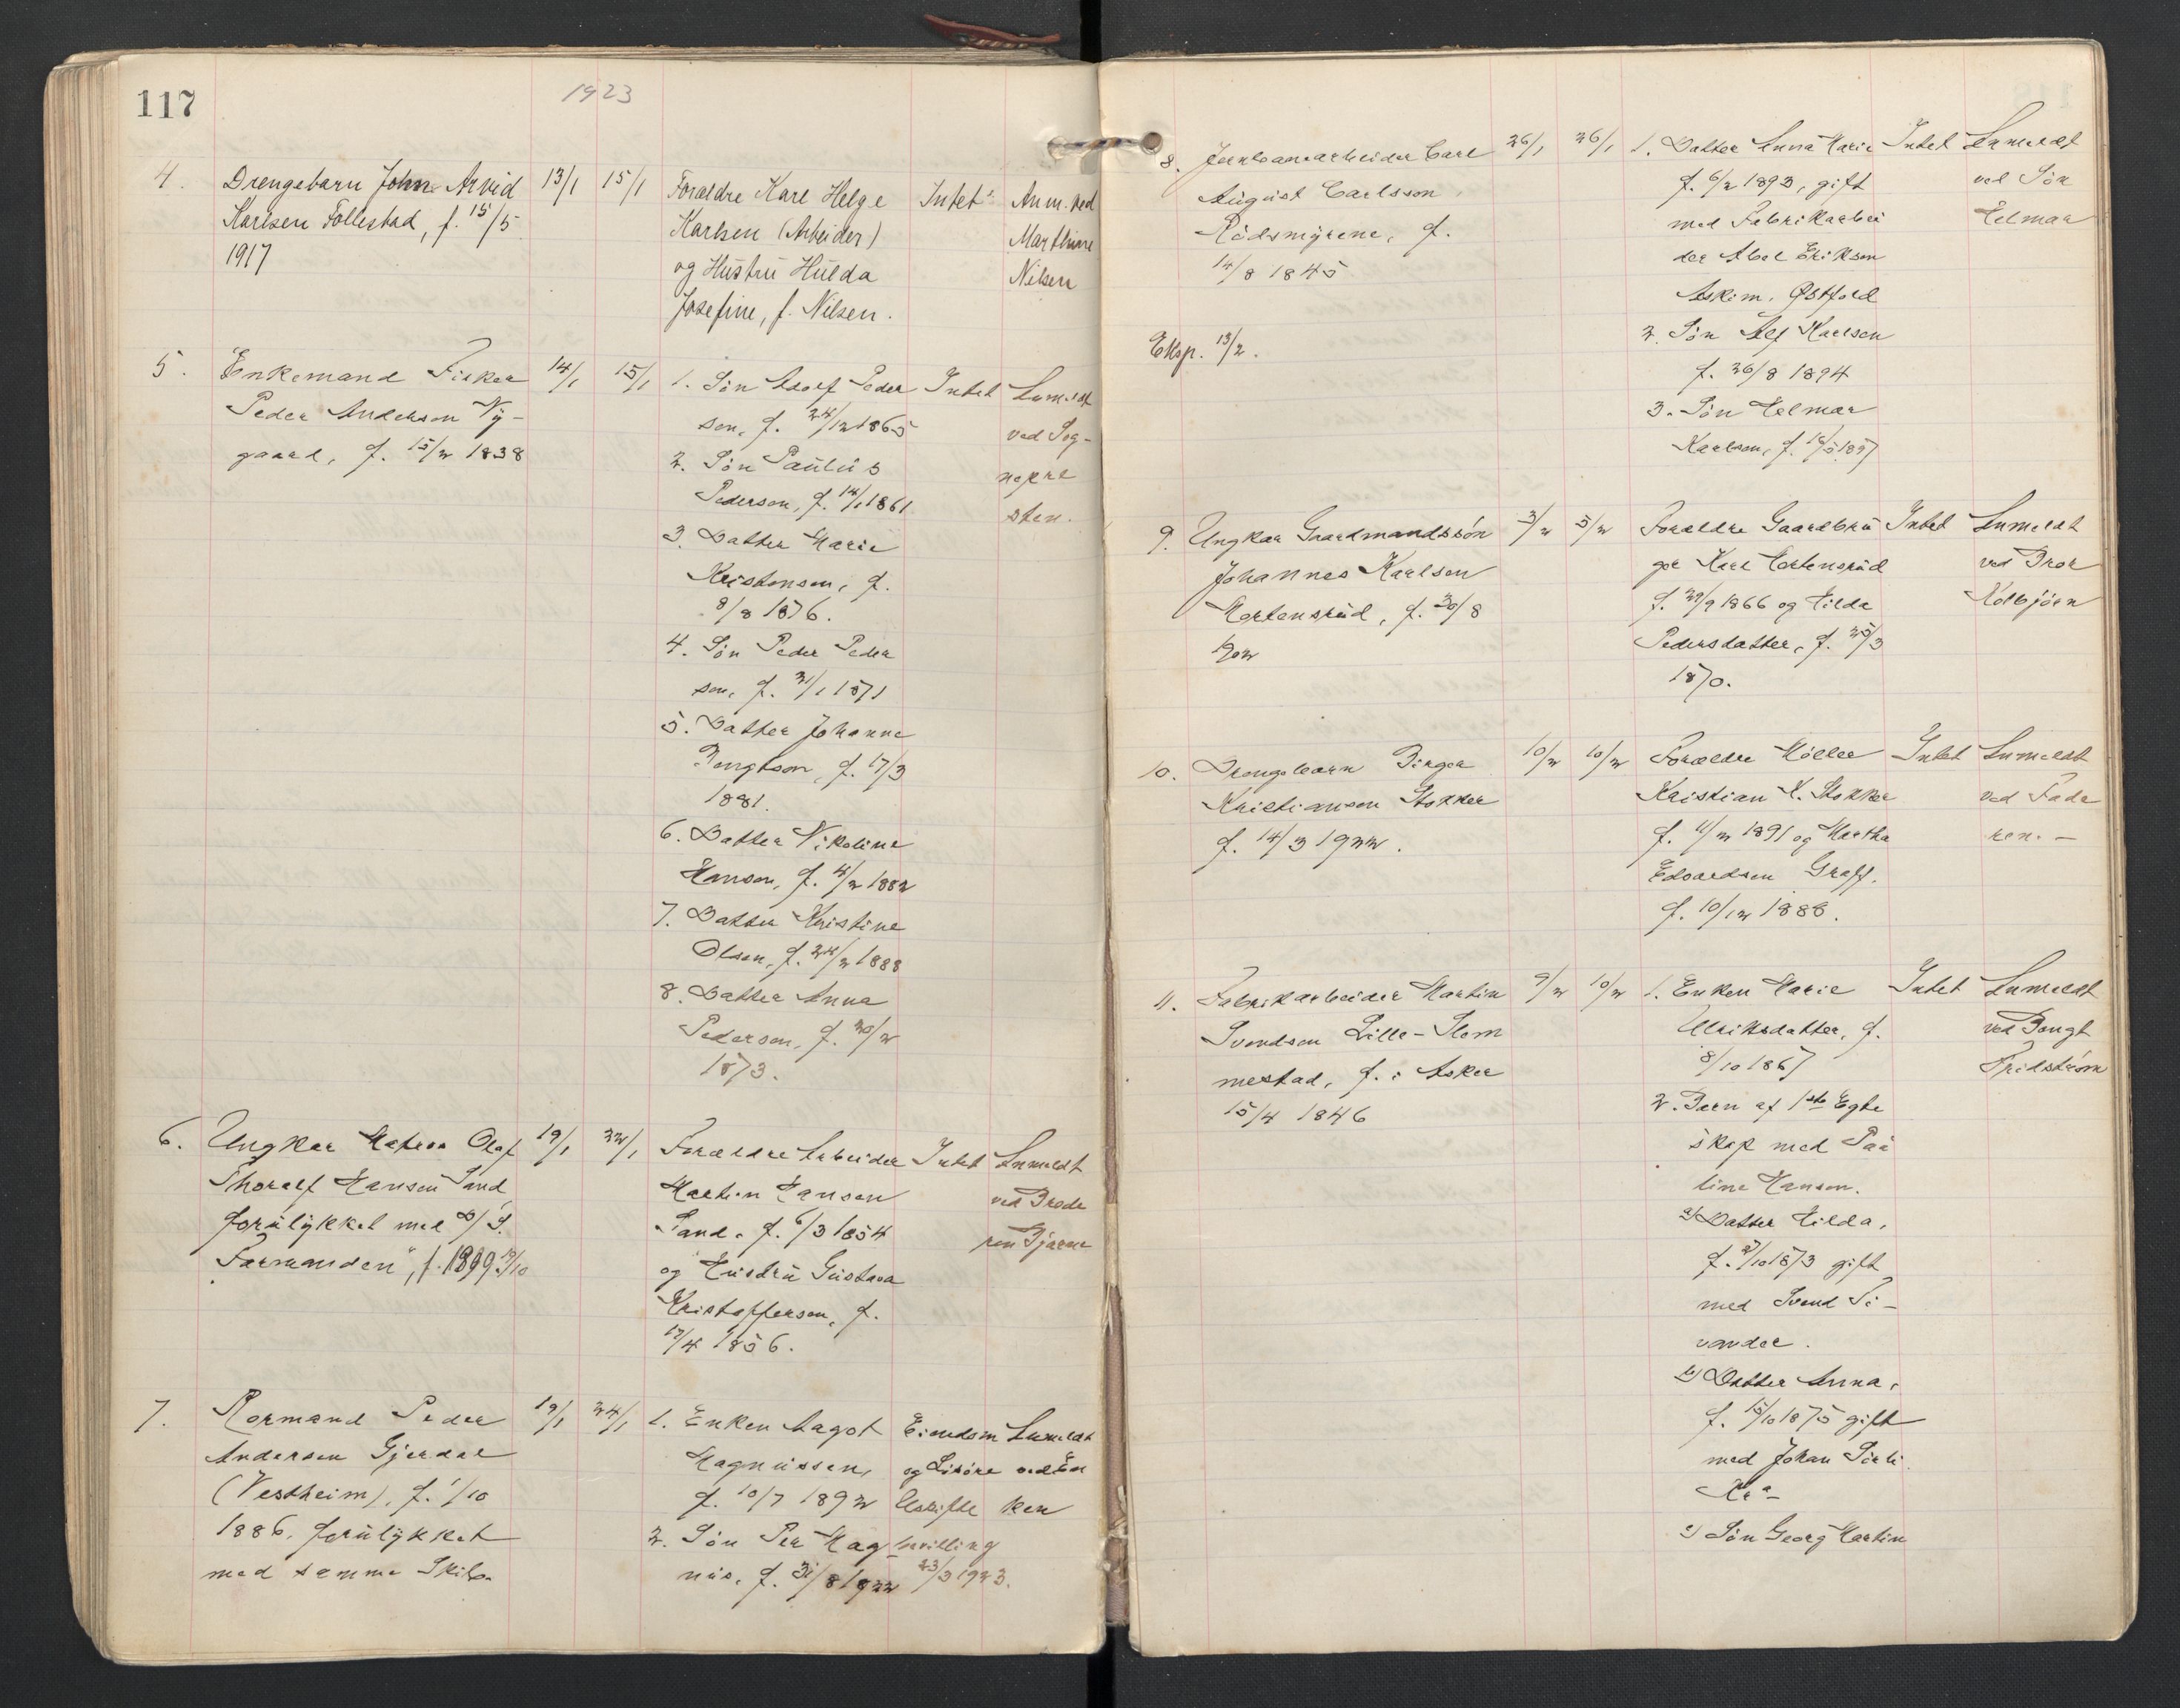 117
1923
4. Drengebarn John Arvid 13/1 15/1 Foræeldre Karl Helge Intet Anm. ved
Karlsen Follestad, f. 15/5 Karlsen (Arbeider) Marthine
1917 og Hustru Hulda Nilsen
Josefine, f. Nilsen.
5. Enkemand Fisker 14/1 15/1 1. Søn Adolf Peder Intet Anmeldt
Peder Andersen Ny- sen, f. 24/12 1865 ved Sog-
gaard, f. 15/2 1838 2. Søn Paulus nepre
Pedersen, f. 14/1 1861 sten.
3. Datter Marie
Kristensen, f.
8/8 1876.
4. Søn Peder Peder
sen, f. 21/1 1871
5. Datter Johanne
Bengtson, f. 17/3
1881.
6. Datter Nikoline
Hansen, f. 4/2 1882
7. Datter Kristine
Olsen, f. 24/2 1888
8. Datter Anna
Pedersen, f. 20/2
1873.
6. Ungkar Matros Olaf 19/1 22/1 Forældre Arbeider Intet Anmeldt
Thoralf Hansen Sand, Martin Hansen ved Brode
forulykket med D/S. Sand, f. 6/3 1854 ren Bjarne
"Formanden", f. 1899 19/10 og Hustru Gustava
Kristoffersen, f.
17/4 1856.
7. Rormand Peder 19/1 24/1 1. Enken Aagot Eiendom Anmeldt
Andersen Gjerdal Magnussen, og Løsøre ved En
(Vestheim), f. 1/10 f. 10/7 1892 Uskifte ken
1886. forulykket 2. Søn Per Mag- bevilling
med samme Skib. nus, f. 31/8 1922 23/3 1923.
8. Jernbanearbeider Carl 26/1 26/1 1. Datter Anna Marie Intet Anmeldt
August Carlsson f. 6/2 1893, gift ved Søn
Rødsmyrene, f. med Fabrikarbei Helmar
14/8 1845 der Abel Eriksen
Askim, Østfold
2. Søn Alf Karlsen
Eksp. 13/2.
f. 26/8 1894
3. Søn Helmar
Karlsen, f. 16/5 1897
9. Ungkar Gaardmandssøn 3/2 5/2 Forældre Gaardbru Intet Anmeldt
Johannes Karlsen ger Karl Mortensrud ved Bror
Mortensrud, f. 30/8 f. 29/9 1866 og Hilda Kolbjørn
1902 Pedersdatter, f. 25/3
1870.
10. Drengebarn Birger 10/2 10/2 Forældre Møller Intet Anmeldt
Kristiansen Stokker Kristian K. Stokker ved Fade
f. 14/3 1922. f. 11/2 1891 og Martha ren. -
Edvardsen Graff.
f. 10/12 1888.
11. Fabrikarbeider Martin 9/2 10/2 1. Enken Marie Intet Anmeldt
Svendsen Lille-Slem Ulriksdatter, f. ved Bengt
mestad, f. i Asker 8/10 1867 Fridstrøm
15/4 1846 2. Barn af 1ste Egte
skap med Pau
line Hansen.
a) Datter Hilda,
f. 27/10 1873 gift
med Svend Si-
vander.
b) Datter Anna,
f. 15/10 1875 gift
med Johan Sørli
Kra
c) Søn Georg Martin